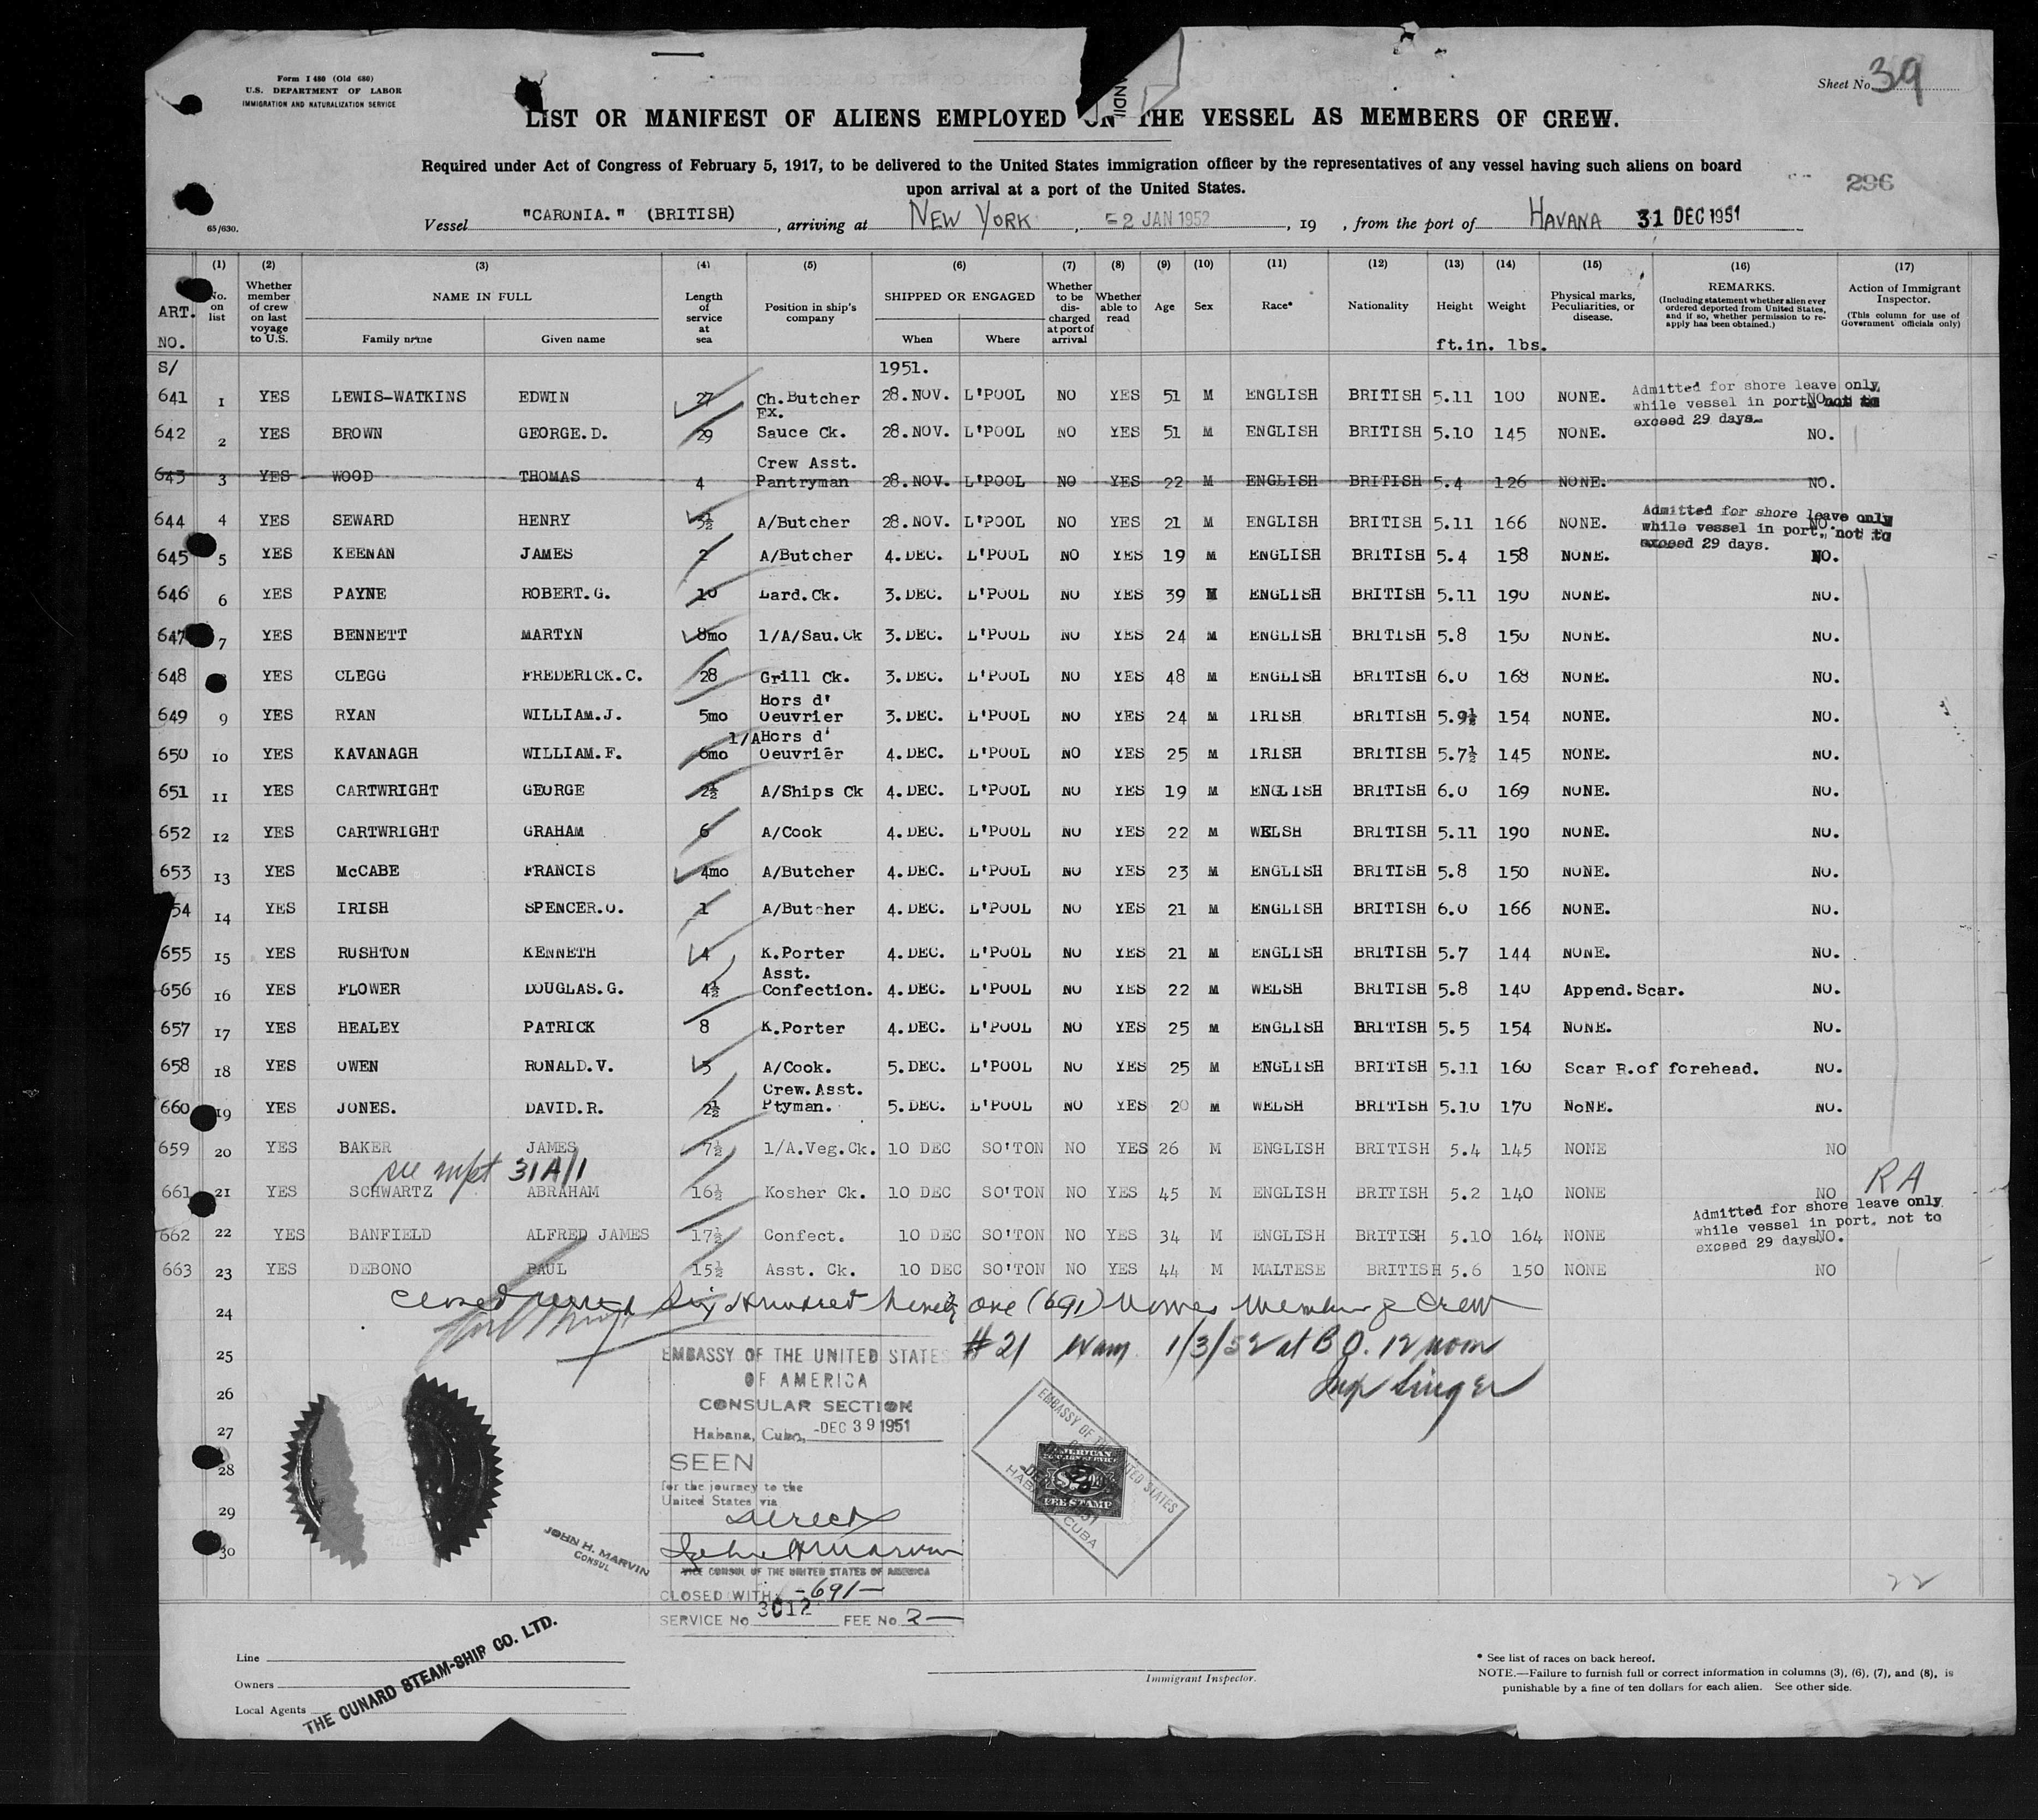 Form I 480 (Old 680)
U.S. DEPARTMENT OF LABOR
IMMIGRATION AND NATURALIZATION SERVICE
Sheet No. 39
LIST OR MANIFEST OF ALIENS EMPLOYED ON THE VESSEL AS MEMBERS OF CREW.
Required under Act of Congress of February 5, 1917, to be delivered to the United States immigration officer by the representatives of any vessel having such aliens on board
upon arrival at a port of the United States.
296
65/630.
Vessel "CARONIA." (BRITISH), arriving at NEW YORK, -2 JAN 1952, 19 , from the port of HAVANA 31 DEC 1951
(1) (2) (3) (4) (5) (6) (7) (8) (9) (10) (11) (12) (13) (14) (15) (16) (17)
ART. NO.
No. on list
Whether member of crew on last voyage to U.S.
NAME IN FULL
Family name
Given name
Length of service at sea
Position in ship's company
SHIPPED OR ENGAGED
When
Where
Whether to be discharged at port of arrival
Whether able to read
Age
Sex
Race*
Nationality
Height
Weight
ft.in. lbs.
Physical marks, Peculiarities, or disease.
REMARKS.
(Including statement whether alien ever ordered deported from United States, and if so, whether permission to reapply has been obtained.)
Action of Immigrant Inspector.
(This column for use of Government officials only)
S/ 1951.
641 1 YES LEWIS-WATKINS EDWIN 27 Ch.Butcher 28.NOV. L'POOL NO YES 51 M ENGLISH BRITISH 5.11 100 NONE. NO.
Admitted for shore leave only
while vessel in port, not to
exceed 29 days.
642 2 YES BROWN GEORGE.D. 29 Ex. Sauce Ck. 28.NOV. L'POOL NO YES 51 M ENGLISH BRITISH 5.10 145 NONE. NO.
643 3 YES WOOD THOMAS 4 Crew Asst. Pantryman 28.NOV. L'POOL NO YES 22 M ENGLISH BRITISH 5.4 126 NONE. NO.
644 4 YES SEWARD HENRY 5½ A/Butcher 28.NOV. L'POOL NO YES 21 M ENGLISH BRITISH 5.11 166 NONE. NO.
Admitted for shore leave only
while vessel in port, not to
exceed 29 days.
645 5 YES KEENAN JAMES 2 A/Butcher 4.DEC. L'POOL NO YES 19 M ENGLISH BRITISH 5.4 158 NONE. NO.
646 6 YES PAYNE ROBERT.G. 10 Lard.Ck. 3.DEC. L'POOL NO YES 39 M ENGLISH BRITISH 5.11 190 NONE. NO.
647 7 YES BENNETT MARTYN 8mo 1/A/Sau.Ck 3.DEC. L'POOL NO YES 24 M ENGLISH BRITISH 5.8 150 NONE. NO.
648 YES CLEGG FREDERICK.C. 28 Grill Ck. 3.DEC. L'POOL NO YES 48 M ENGLISH BRITISH 6.0 168 NONE. NO.
649 9 YES RYAN WILLIAM.J. 5mo Hors d' Oeuvrier 3.DEC. L'POOL NO YES 24 M IRISH BRITISH 5.9½ 154 NONE. NO.
650 10 YES KAVANAGH WILLIAM.F. 6mo 1/A Hors d' Oeuvrier 4.DEC. L'POOL NO YES 25 M IRISH BRITISH 5.7½ 145 NONE. NO.
651 11 YES CARTWRIGHT GEORGE 2½ A/Ships Ck 4.DEC. L'POOL NO YES 19 M ENGLISH BRITISH 6.0 169 NONE. NO.
652 12 YES CARTWRIGHT GRAHAM 6 A/Cook 4.DEC. L'POOL NO YES 22 M WELSH BRITISH 5.11 190 NONE. NO.
653 13 YES McCABE FRANCIS 4mo A/Butcher 4.DEC. L'POOL NO YES 23 M ENGLISH BRITISH 5.8 150 NONE. NO.
54 14 YES IRISH SPENCER.O. 1 A/Butcher 4.DEC. L'POOL NO YES 21 M ENGLISH BRITISH 6.0 166 NONE. NO.
655 15 YES RUSHTON KENNETH 4 K.Porter 4.DEC. L'POOL NO YES 21 M ENGLISH BRITISH 5.7 144 NONE. NO.
656 16 YES FLOWER DOUGLAS.G. 4½ Asst. Confection. 4.DEC. L'POOL NO YES 22 M WELSH BRITISH 5.8 140 Append.Scar. NO.
657 17 YES HEALEY PATRICK 8 K.Porter 4.DEC. L'POOL NO YES 25 M ENGLISH BRITISH 5.5 154 NONE. NO.
658 18 YES OWEN RONALD.V. 3 A/Cook. 5.DEC. L'POOL NO YES 25 M ENGLISH BRITISH 5.11 160 Scar R.of forehead. NO.
660 19 YES JONES. DAVID.R. 2½ Crew.Asst. Ptyman. 5.DEC. L'POOL NO YES 20 M WELSH BRITISH 5.10 170 NONE. NO.
659 20 YES BAKER JAMES 7½ 1/A.Veg.Ck. 10 DEC SO'TON NO YES 26 M ENGLISH BRITISH 5.4 145 NONE NO
see mfst 31A/1
661 21 YES SCHWARTZ ABRAHAM 16½ Kosher Ck. 10 DEC SO'TON NO YES 45 M ENGLISH BRITISH 5.2 140 NONE NO RA
Admitted for shore leave only
while vessel in port, not to
exceed 29 days
662 22 YES BANFIELD ALFRED JAMES 17½ Confect. 10 DEC SO'TON NO YES 34 M ENGLISH BRITISH 5.10 164 NONE NO.
663 23 YES DEBONO PAUL 15½ Asst. Ck. 10 DEC SO'TON NO YES 44 M MALTESE BRITISH 5.6 150 NONE NO
24 Closed Six Hundred Ninety one (691) Names Members of Crew
25 #21 exam. 1/3/52 at B.O. 12 noon
Insp Singer
26
27
28
29
30
EMBASSY OF THE UNITED STATES
OF AMERICA
CONSULAR SECTION
Habana, Cuba, DEC 39 1951
SEEN
for the journey to the
United States via
direct
John H Marvin
VICE CONSUL OF THE UNITED STATES OF AMERICA
CLOSED WITH -691-
SERVICE No. 3012 FEE No 2—
JOHN H. MARVIN
CONSUL
EMBASSY OF THE UNITED STATES
HABANA CUBA
AMERICAN
FEE STAMP
22
Line
Owners
Local Agents
THE CUNARD STEAM-SHIP CO. LTD.
Immigrant Inspector.
* See list of races on back hereof.
NOTE.—Failure to furnish full or correct information in columns (3), (6), (7), and (8), is
punishable by a fine of ten dollars for each alien. See other side.